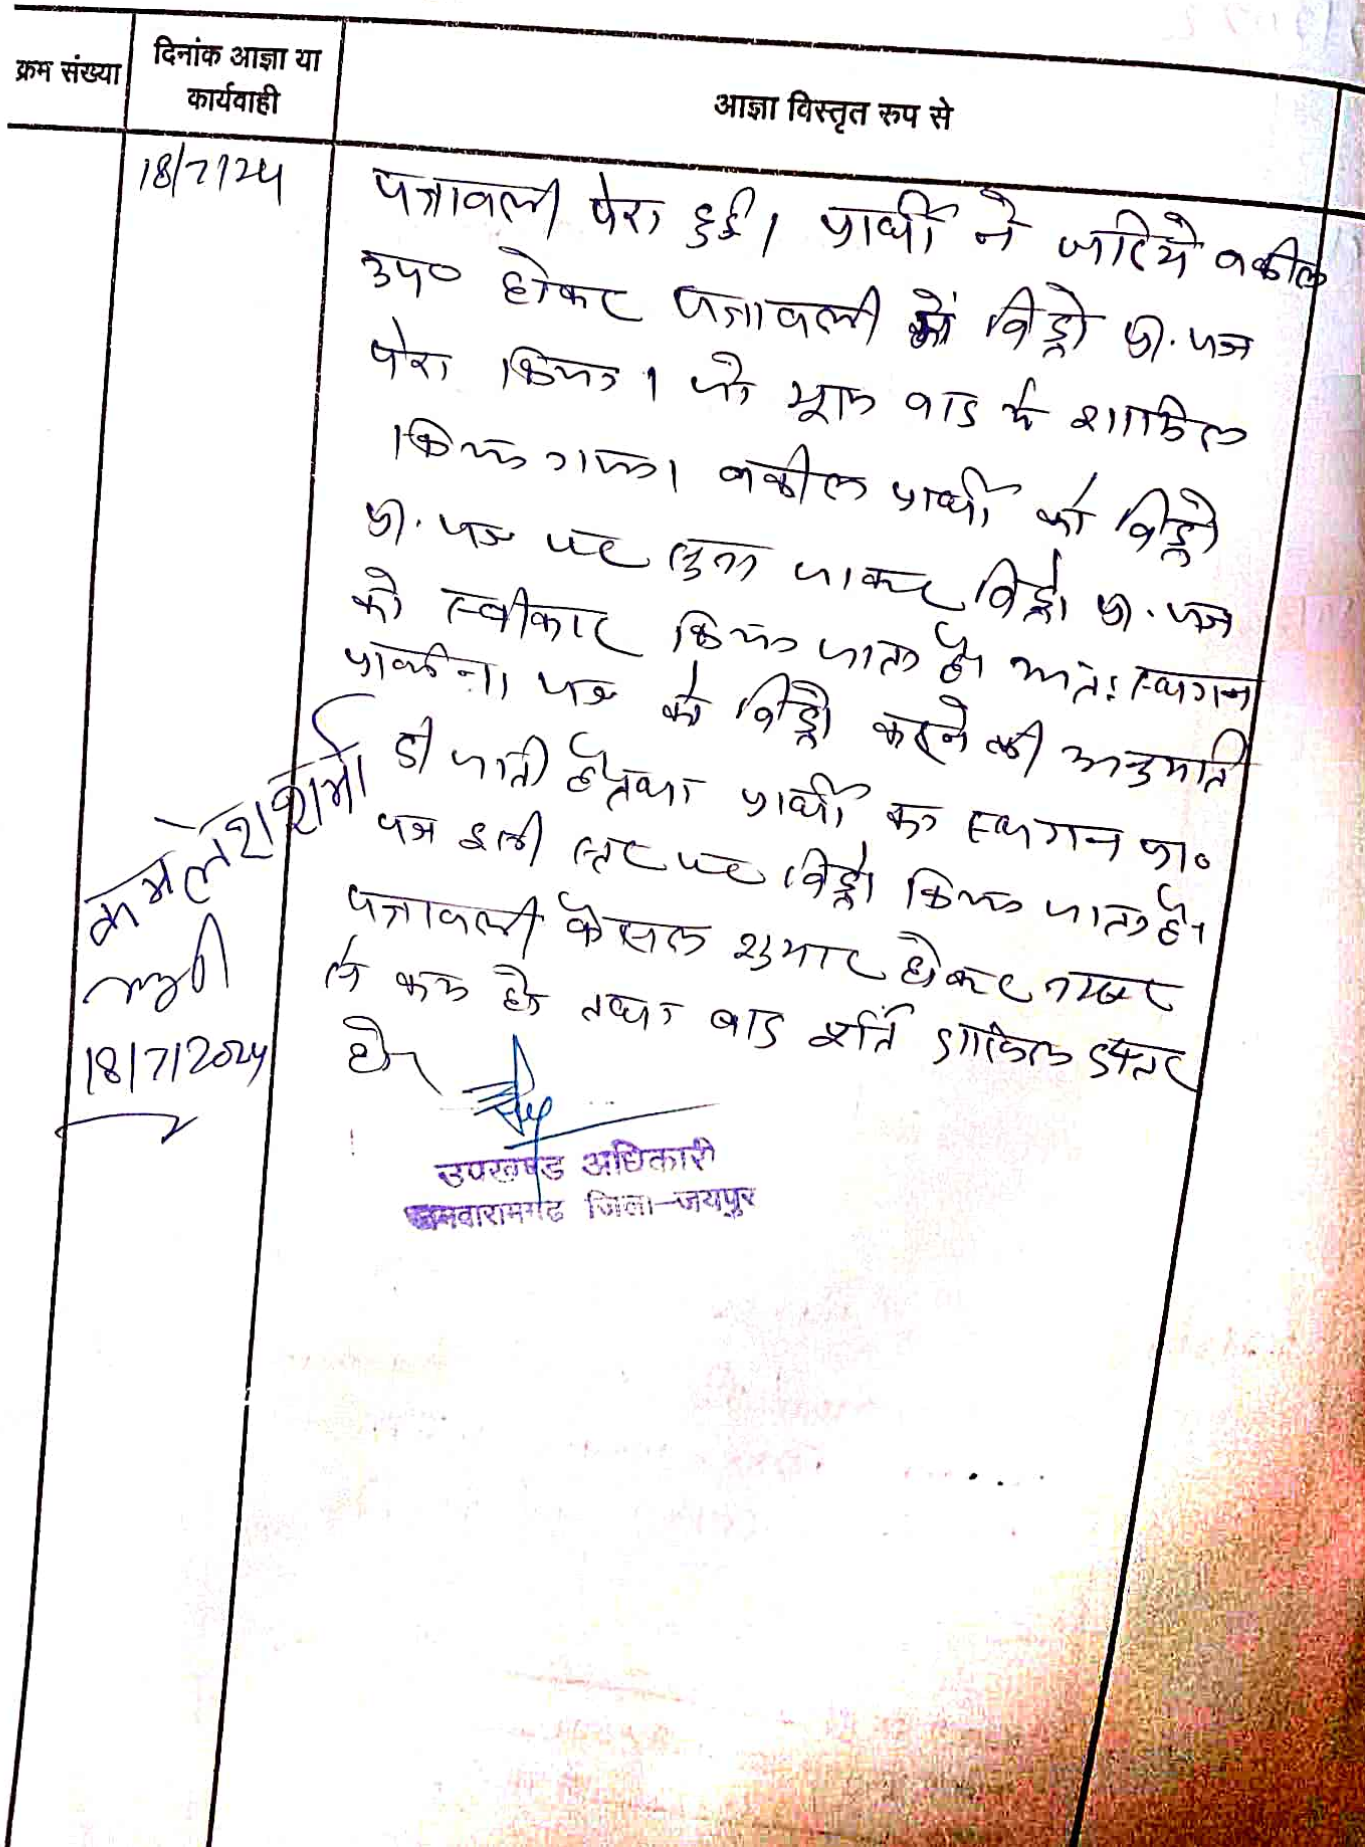 क्रम संख्या
दिनांक आज्ञा या
कार्यवाही
आज्ञा विस्तृत रूप से
18/7/24
पत्रावली पेश हुई। प्रार्थी ने जरिये वकील
उप० होकर पत्रावली में विड्रो प्रा. पत्र
पेश किया। जो मूल वाद में शामिल
किया गया। वकील प्रार्थी को विड्रो
प्रा. पत्र पर सुना जाकर विड्रो प्रा. पत्र
को स्वीकार किया जाता है। अतः स्थगन
प्रार्थना पत्र को विड्रो करने की अनुमति
दी जाती है तथा प्रार्थी का स्थगन प्रा०
पत्र इसी स्तर पर विड्रो किया जाता है।
पत्रावली फैसल शुमार होकर नम्बर
से कम हो तथा बाद पूर्ति दाखिल दफ्तर
हो।
कमलेश शर्मा
18/7/2024
उपखण्ड अधिकारी
जमवारामगढ जिला-जयपुर